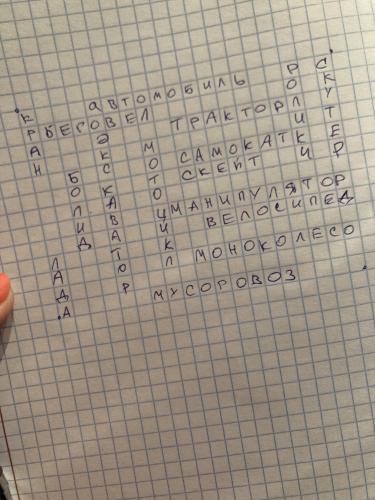 АВТОМОБИЛЬ
БЕГОВЕЛ
ТРАКТОР
САМОКАТ
СКЕЙТ
МАНИПУЛЯТОР
ВЕЛОСИПЕД
МОНОКОЛЕСО
МУСОРОВОЗ
КРАН
БОЛИД
ЛАДА
ЭКСКАВАТОР
МОТОЦИКЛ
РОЛИКИ
СКУТЕР